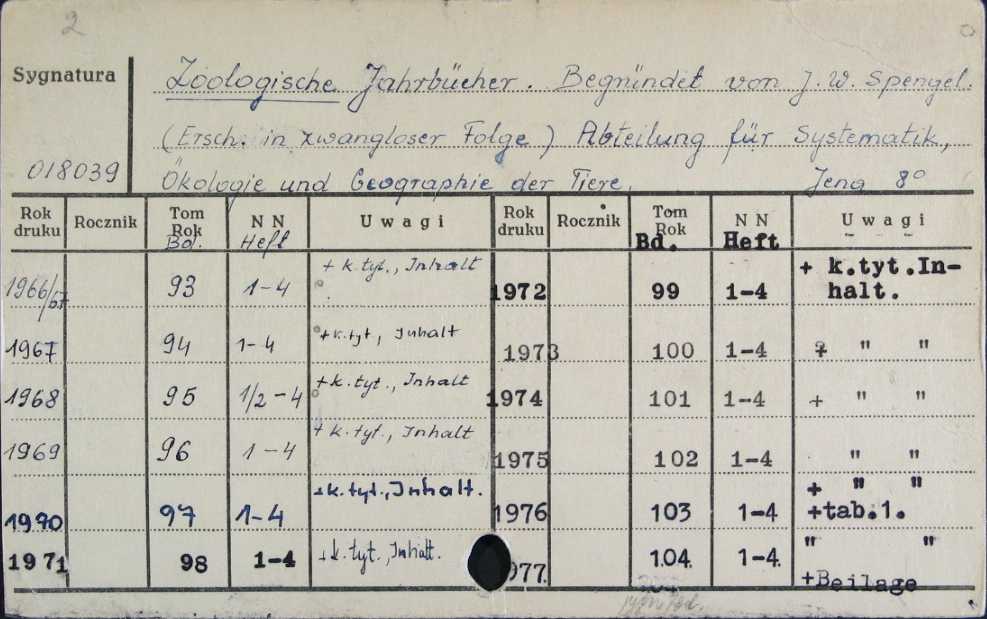 2
Sygnatura
018039
Zoologische Jahrbücher. Begründet von J. W. Spengel.
(Ersch. in zwangloser Folge) Abteilung für Systematik,
Ökologie und Geographie der Tiere. Jena 8°
Rok druku Rocznik Tom Rok Bd. NN Heft Uwagi Rok druku Rocznik Tom Rok Bd. NN Heft Uwagi
1966/67 93 1-4 + k.tyt., Inhalt 1972 99 1-4 + k.tyt.In-
halt.
1967 94 1-4 + k.tyt., Inhalt 1973 100 1-4 + " "
1968 95 1/2-4 + k.tyt., Inhalt 1974 101 1-4 + " "
1969 96 1-4 + k.tyt., Inhalt 1975 102 1-4 " "
1970 97 1-4 + k.tyt., Inhalt. 1976 103 1-4 + " "
+tab.1.
1971 98 1-4 + k.tyt., Inhalt. 977. 104. 1-4. " "
+Beilage